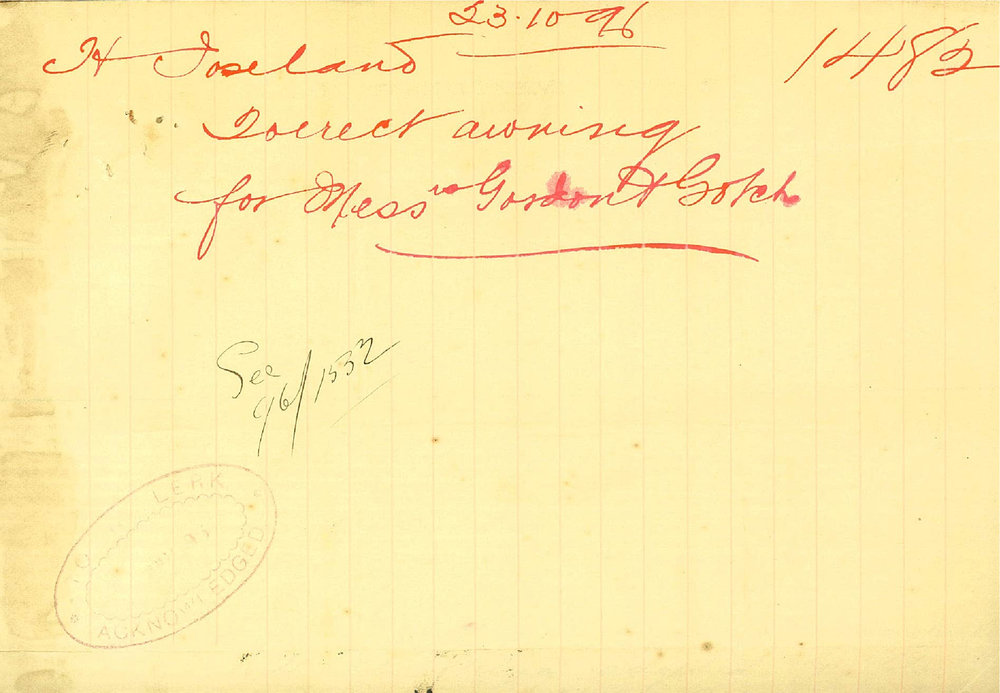 23.10 96
H Joseland
1482
To erect awning
for Messrs Gordon & Gotch
See
96/1532
LERK
ACKNOWLEDGED